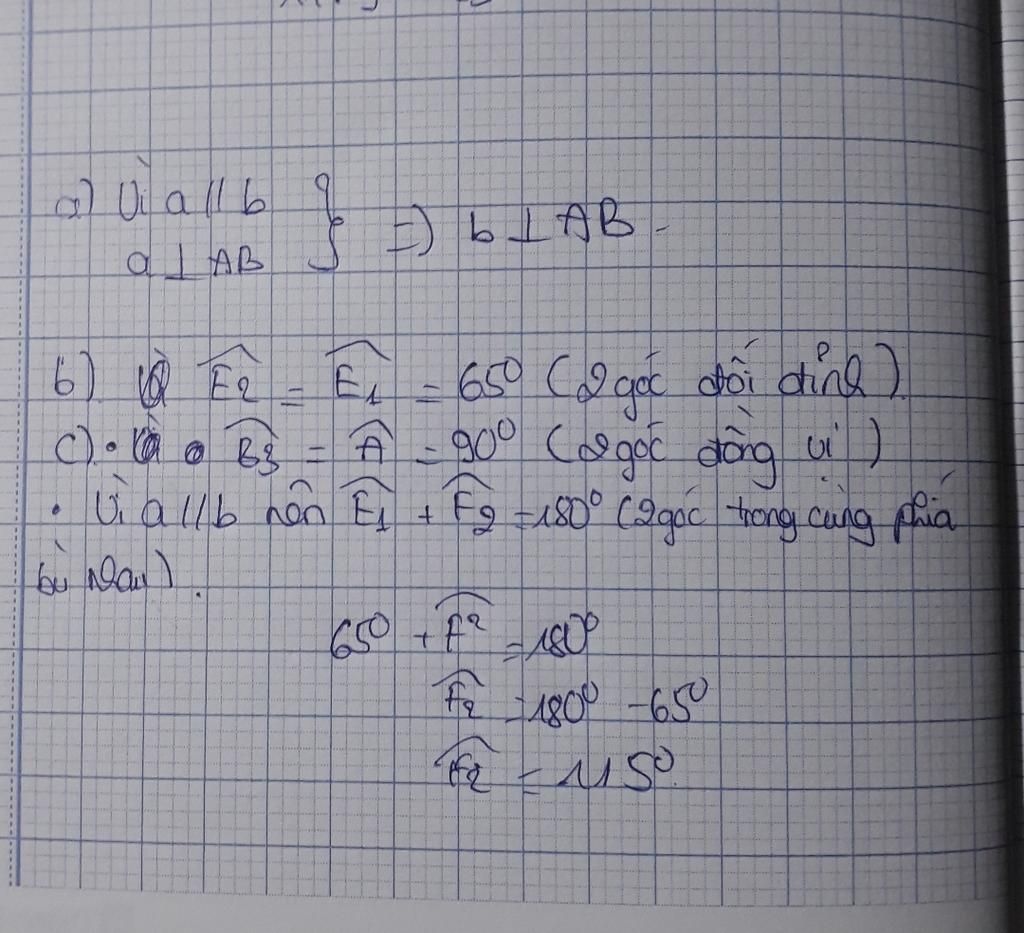 a) Vì a // b
a ⊥ AB } => b ⊥ AB.
b). Ê2 = Ê1 = 65° (2 góc đối đỉnh).
c) • B̂3 = Â = 90° (2 góc đồng vị)
• Vì a // b nên Ê1 + F̂2 = 180° (2 góc trong cùng phía
bù nhau).
65° + F̂2 = 180°
F̂2 = 180° - 65°
F̂2 = 115°.